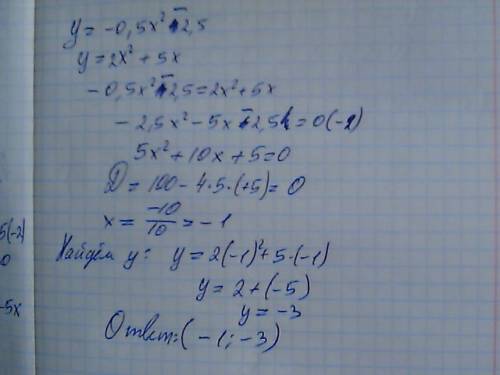 y = -0,5x² - 2,5
y = 2x² + 5x
-0,5x² - 2,5 = 2x² + 5x
-2,5x² - 5x - 2,5 = 0 (-2)
5x² + 10x + 5 = 0
D = 100 - 4·5·(+5) = 0
5(-2)
x = -10/10 = -1
0
Найдём y: y = 2(-1)² + 5·(-1)
y = 2 + (-5)
-5x
y = -3
Ответ: (-1; -3)